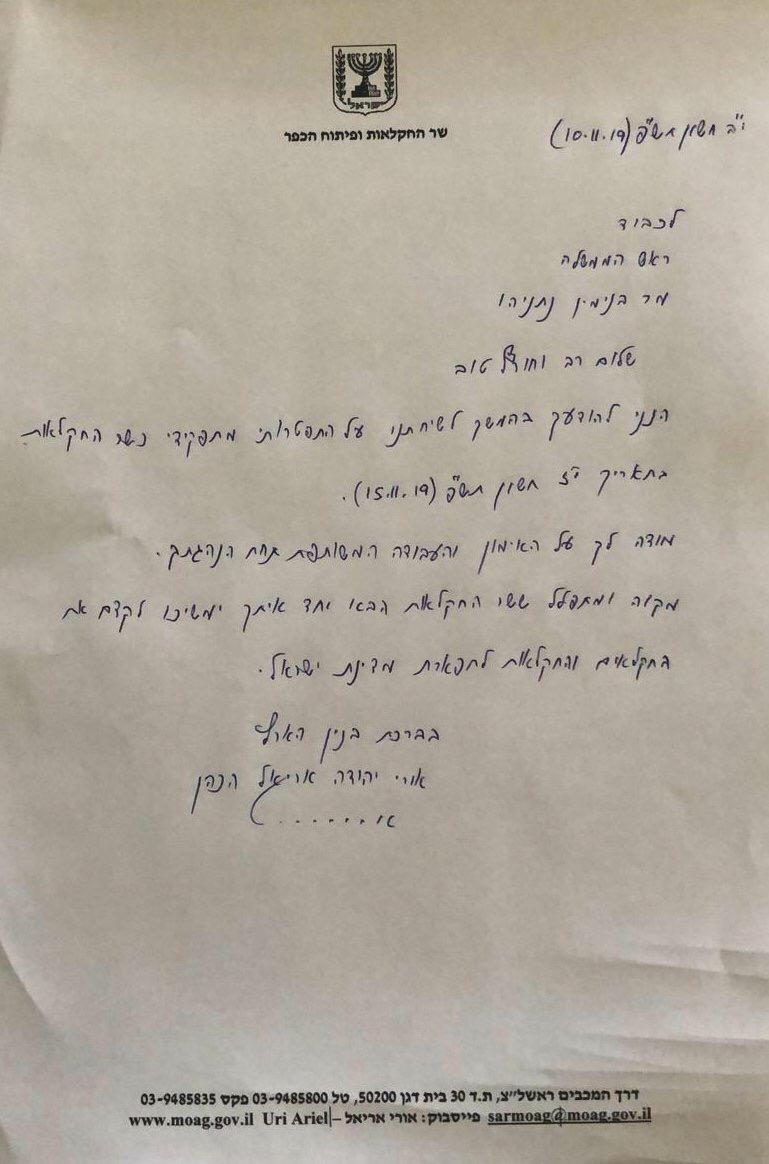 ישראל
שר החקלאות ופיתוח הכפר
י"ב חשון תש"פ (10.11.19)
לכבוד
ראש הממשלה
מר בנימין נתניהו
שלום רב וחורף טוב
הנני להודיעך בהמשך לשיחתנו על התפטרותי מתפקידי כשר החקלאות
בתאריך י"ז חשון תש"פ (15.11.19).
מודה לך על האימון והעבודה המשותפת תחת הנהגתך.
מקוה ומתפלל ששר החקלאות הבא יחד איתך ימשיכו לקדם את
החקלאים והחקלאות לתפארת מדינת ישראל.
בברכת בנין הארץ
אורי יהודה אריאל הכהן
דרך המכבים ראשל"צ, ת.ד 30 בית דגן 50200, טל 03-9485800 פקס 03-9485835
sarmoag@moag.gov.il פייסבוק: אורי אריאל – Uri Ariel www.moag.gov.il